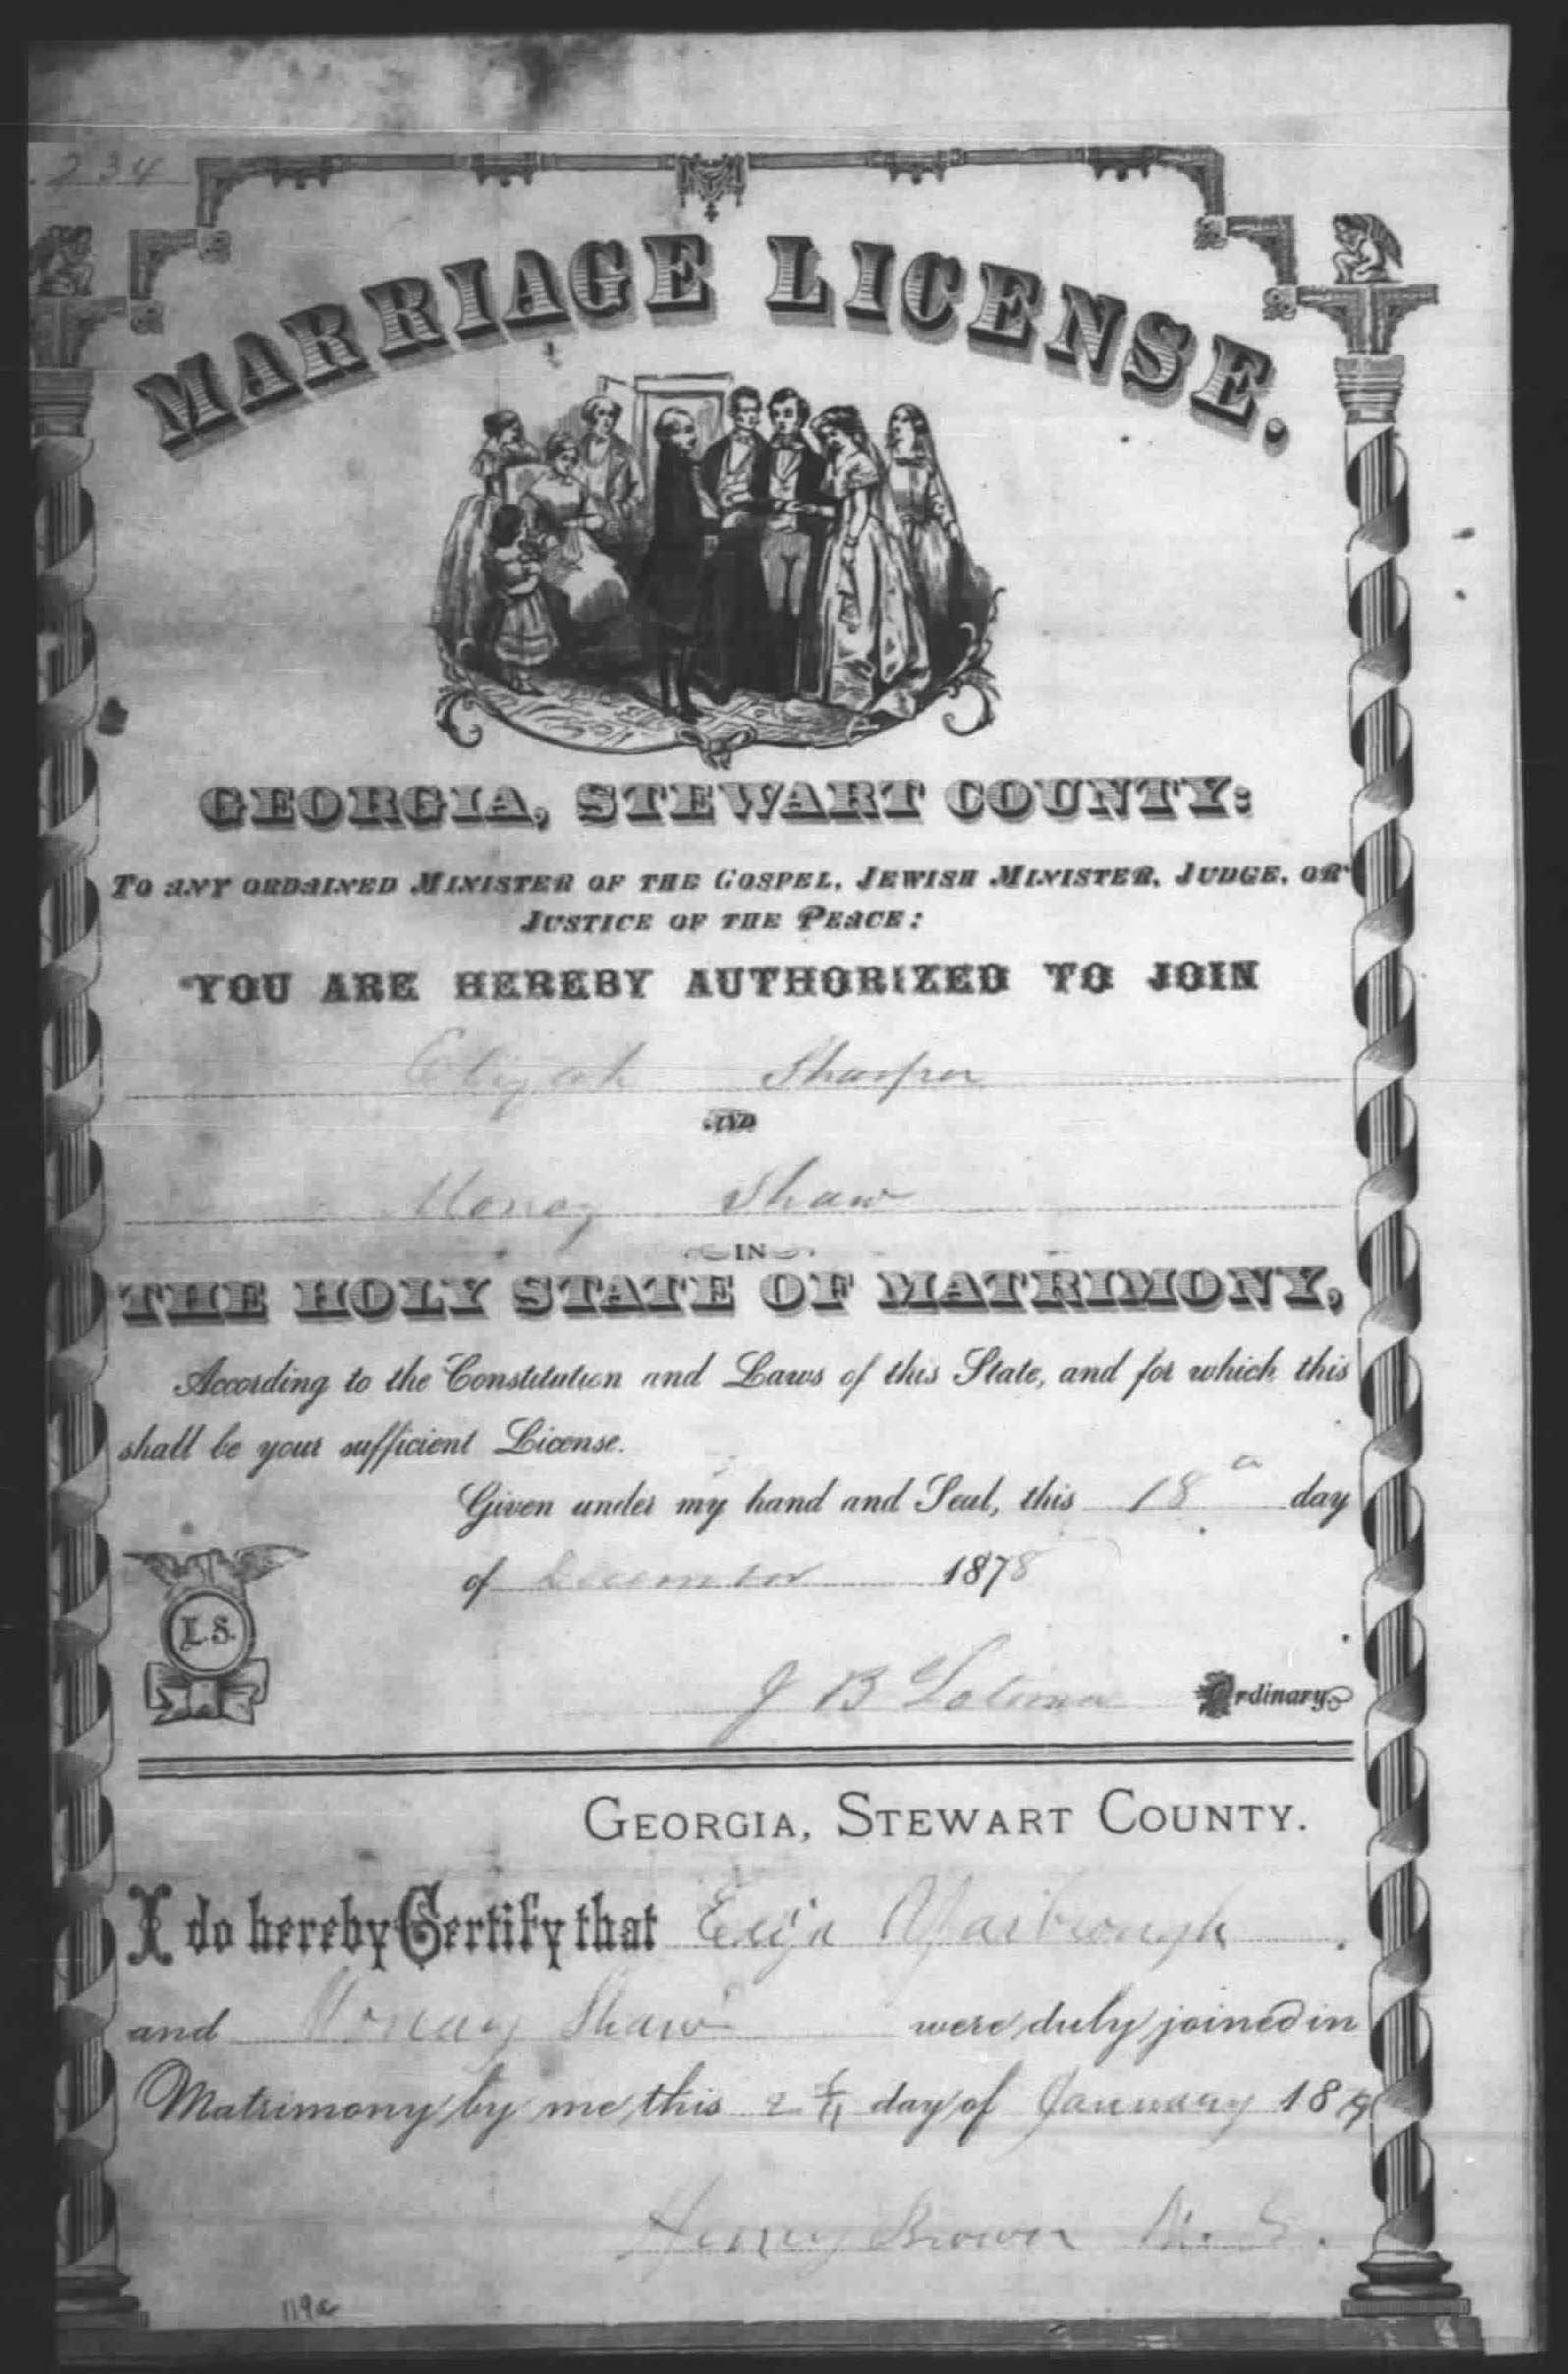 234
MARRIAGE LICENSE.
GEORGIA, STEWART COUNTY:
TO ANY ORDAINED MINISTER OF THE GOSPEL, JEWISH MINISTER, JUDGE, OR
JUSTICE OF THE PEACE:
YOU ARE HEREBY AUTHORIZED TO JOIN
Elijah Sharper
AND
Shaw
IN
THE HOLY STATE OF MATRIMONY,
According to the Constitution and Laws of this State, and for which this
shall be your sufficient License.
Given under my hand and Seal, this 18 day
of December 1878
L.S.
J B Latimer Ordinary
GEORGIA, STEWART COUNTY.
I do hereby Certify that Yarbrough
and Shaw were duly joined in
Matrimony by me this 2 day of January 1879
Henry Brown
119a